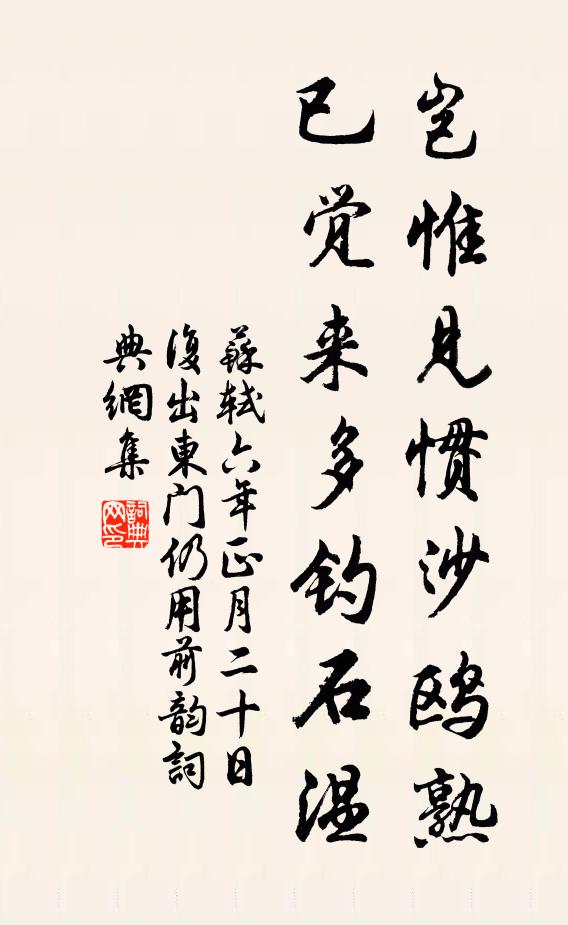 岂惟见惯沙鸥熟
已觉来多钓石温
蘇軾六年正月二十日
復出東门仍用前韵詞
典網集
詞典
网印